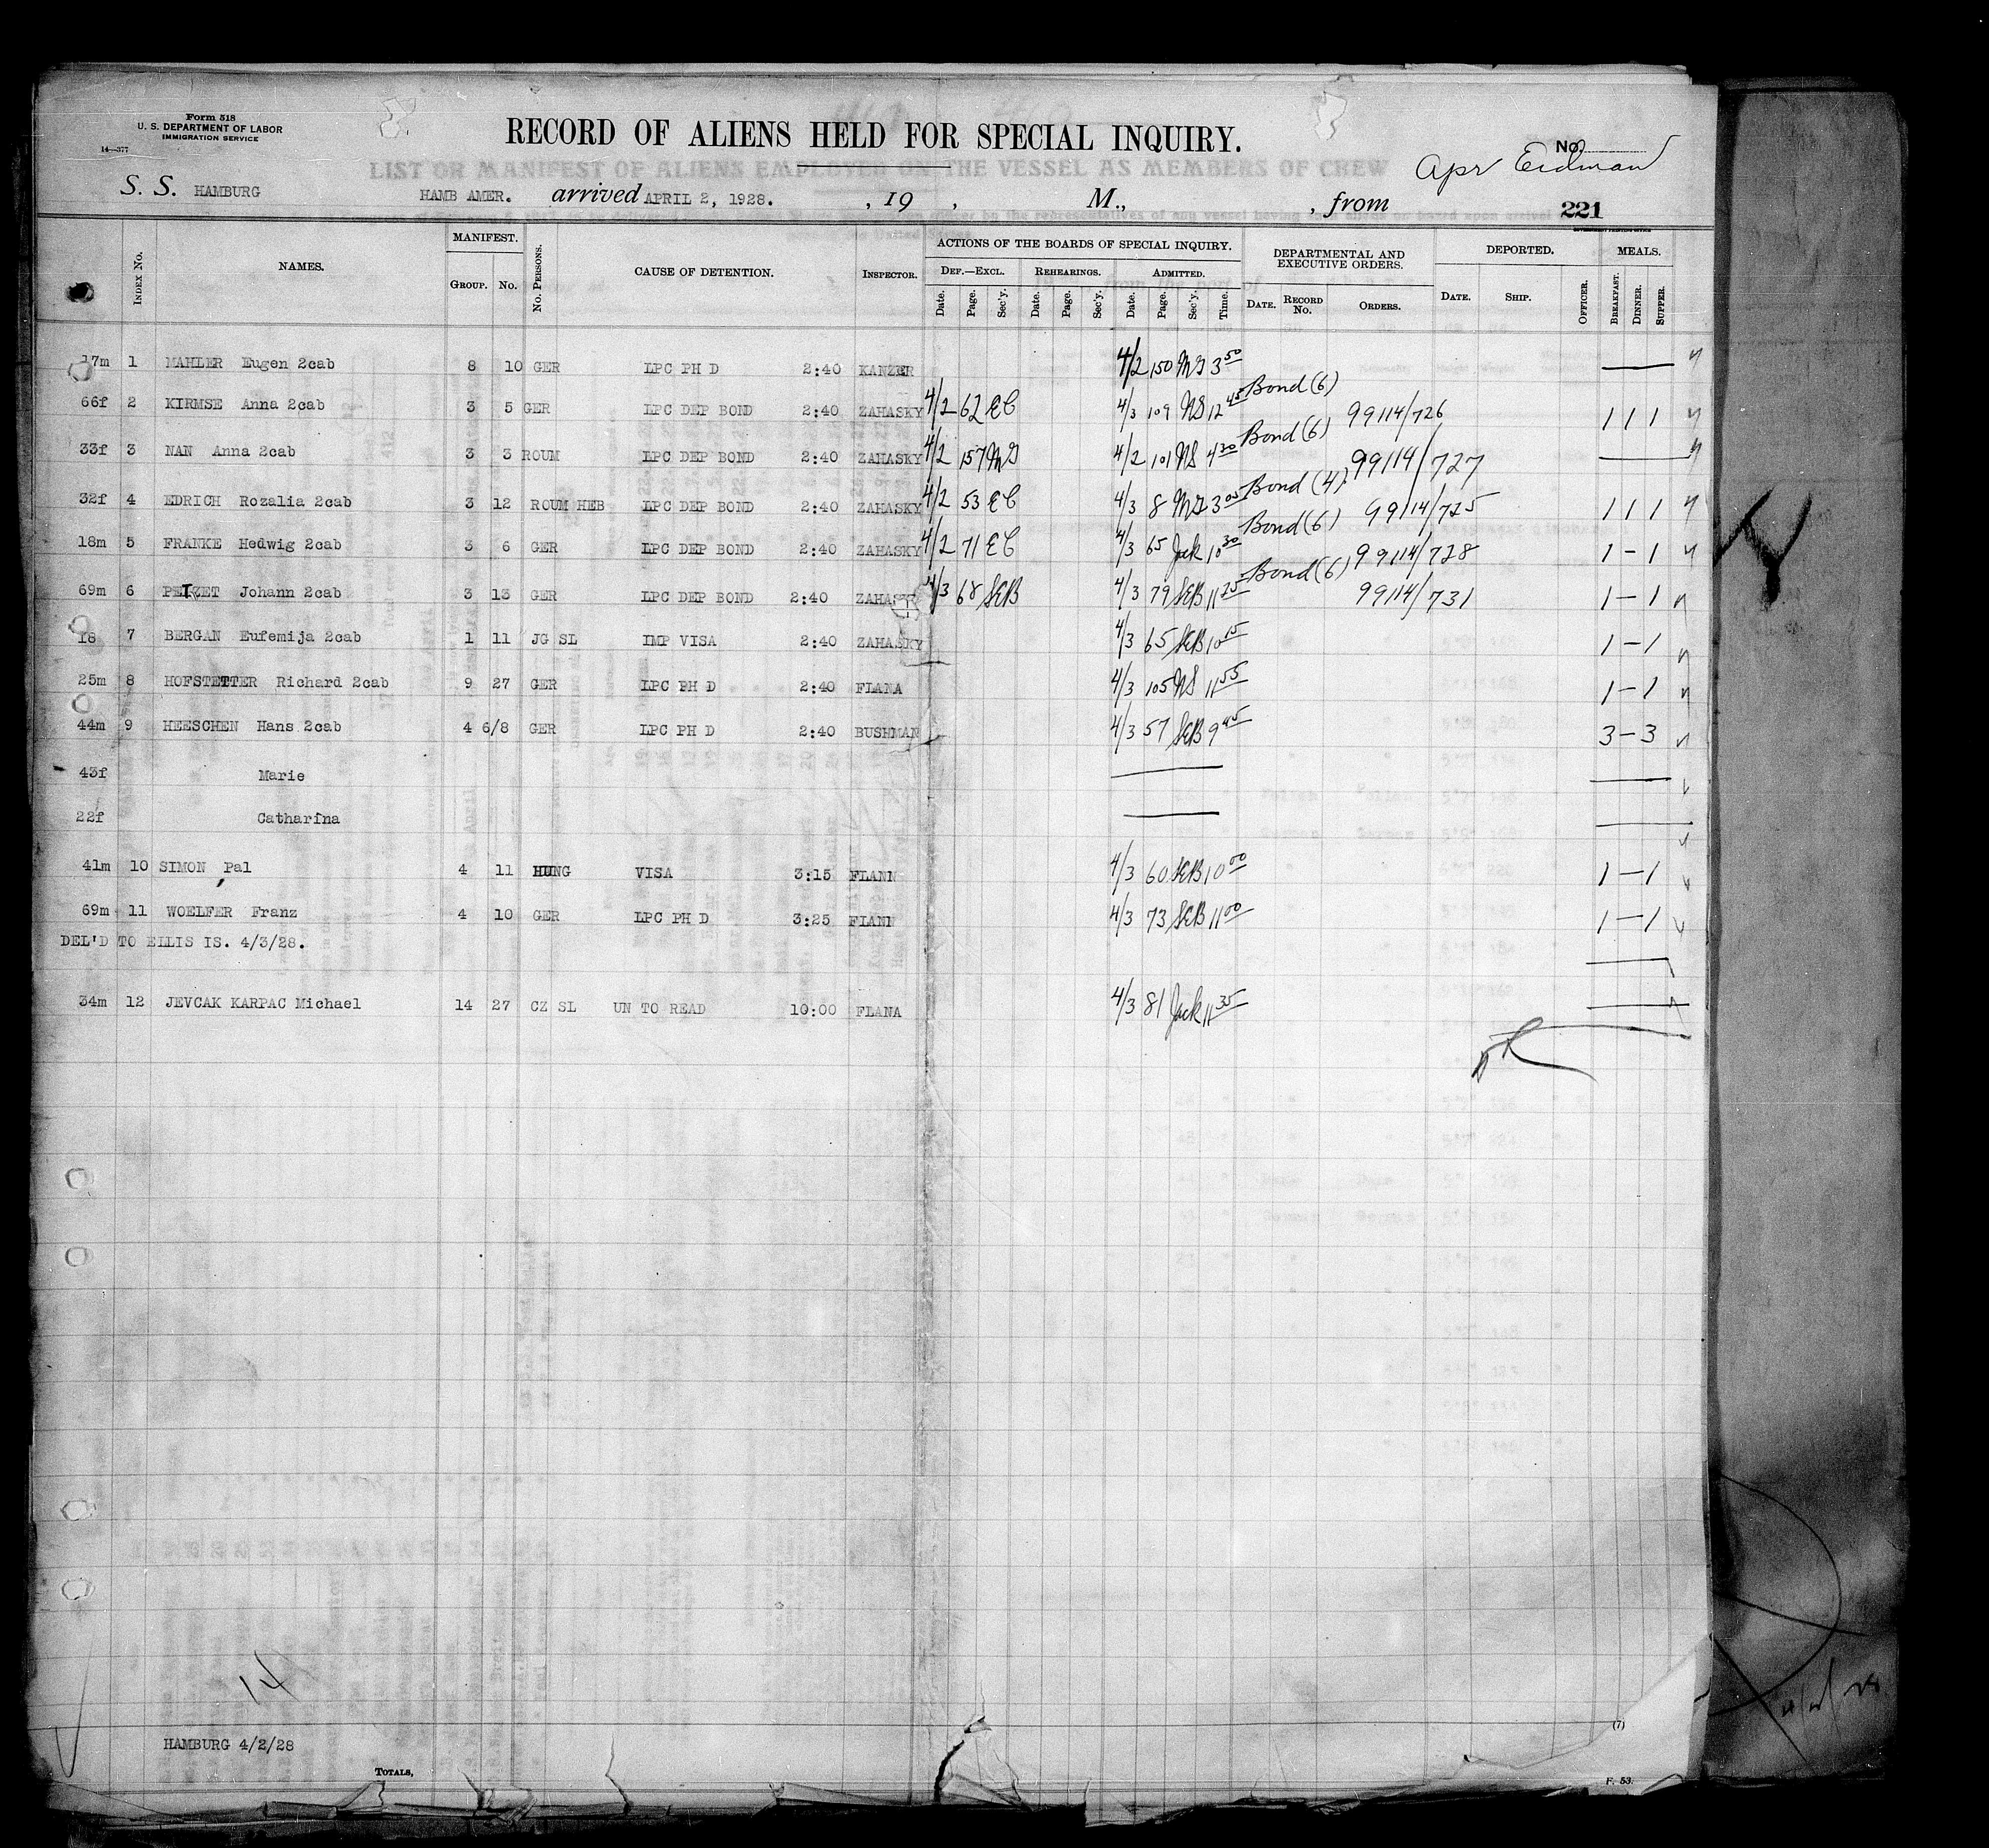 Form 518
U. S. DEPARTMENT OF LABOR
IMMIGRATION SERVICE
14—377
RECORD OF ALIENS HELD FOR SPECIAL INQUIRY.
No.
LIST OR MANIFEST OF ALIENS EMPLOYED ON THE VESSEL AS MEMBERS OF CREW
Apr Eidman
S. S. HAMBURG HAMB AMER. arrived APRIL 2, 1928. , 19 , M., , from
221
INDEX No. NAMES. MANIFEST. GROUP. No. No. PERSONS. CAUSE OF DETENTION. INSPECTOR. ACTIONS OF THE BOARDS OF SPECIAL INQUIRY. DEF.—EXCL. Date. Page. Sec'y. REHEARINGS. Date. Page. Sec'y. ADMITTED. Date. Page. Sec'y. Time. DEPARTMENTAL AND EXECUTIVE ORDERS. DATE. RECORD No. ORDERS. DEPORTED. DATE. SHIP. OFFICER. MEALS. BREAKFAST. DINNER. SUPPER.
17m 1 MAHLER Eugen 2cab 8 10 GER LPC PH D 2:40 KANZER 4/2 150 MG 3 50
66f 2 KIRMSE Anna 2cab 3 5 GER LPC DEP BOND 2:40 ZAHASKY 4/2 62 EC 4/3 109 NS 12 45 Bond (6) 99114/726 1 1 1
33f 3 NAN Anna 2cab 3 3 ROUM LPC DEP BOND 2:40 ZAHASKY 4/2 157 MG 4/2 101 NS 4 30 Bond (6) 99114/727
32f 4 EDRICH Rozalia 2cab 3 12 ROUM HEB LPC DEP BOND 2:40 ZAHASKY 4/2 53 EC 4/3 8 MG 3 05 Bond (4) 99114/725 1 1 1
18m 5 FRANKE Hedwig 2cab 3 6 GER LPC DEP BOND 2:40 ZAHASKY 4/2 71 EC 4/3 65 Jack 10 30 Bond (6) 99114/728 1 – 1
69m 6 PEIZET Johann 2cab 3 13 GER LPC DEP BOND 2:40 ZAHASKY 4/3 68 SEB 4/3 79 SEB 11 25 Bond (6) 99114/731 1 – 1
18 7 BERGAN Eufemija 2cab 1 11 JG SL IMP VISA 2:40 ZAHASKY 4/3 65 SEB 10 15 1 – 1
25m 8 HOFSTETTER Richard 2cab 9 27 GER LPC PH D 2:40 FLANA 4/3 105 NS 11 55 1 – 1
44m 9 HEESCHEN Hans 2cab 4 6/8 GER LPC PH D 2:40 BUSHMAN 4/3 57 SEB 9 45 3 – 3
43f Marie
22f Catharina
41m 10 SIMON, Pal 4 11 HUNG VISA 3:15 FLANN 4/3 60 SEB 10 00 1 – 1
69m 11 WOELFER Franz 4 10 GER LPC PH D 3:25 FLANN 4/3 73 SEB 11 00 1 – 1
DEL'D TO ELLIS IS. 4/3/28.
34m 12 JEVCAK KARPAC Michael 14 27 CZ SL UN TO READ 10:00 FLANA 4/3 81 Jack 11 35
14
(7)
HAMBURG 4/2/28
TOTALS,
F. 53.